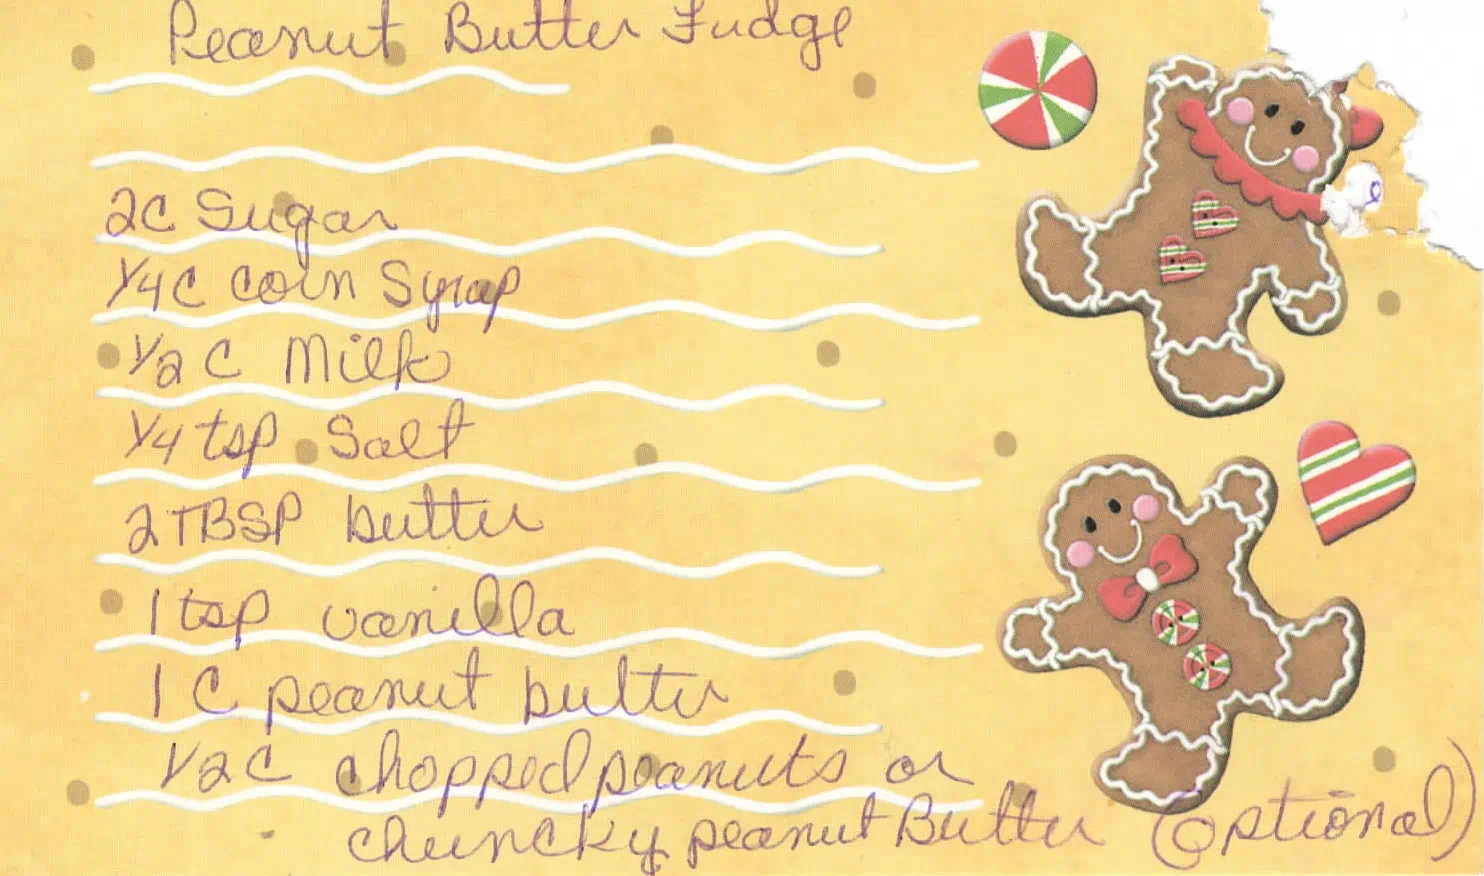 Peanut Butter Fudge
2C Sugar
1/4C corn Syrup
1/2 C Milk
1/4 tsp Salt
2 TBSP butter
1 tsp vanilla
1 C peanut butter
1/2C chopped peanuts or
chuncky peanut Butter (optional)